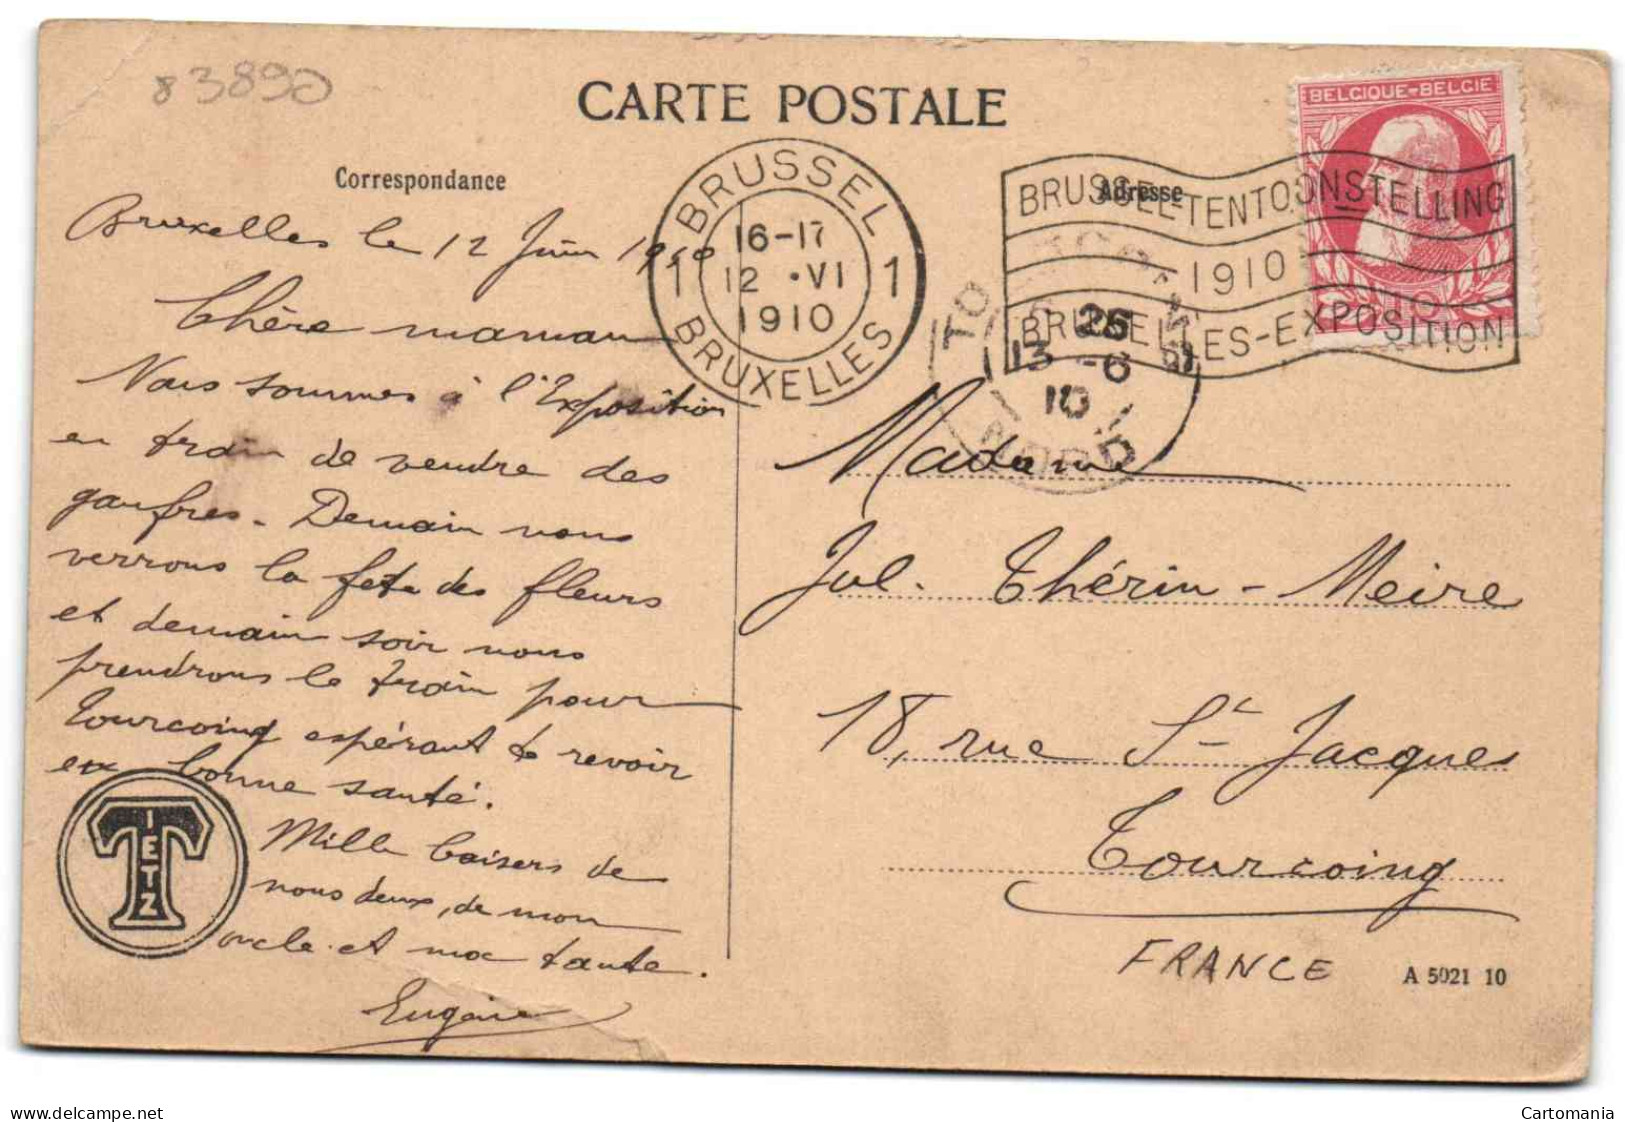 83890
CARTE POSTALE
Correspondance
Adresse
BELGIQUE-BELGIE
10
BRUSSEL
16-17
1 12 •VI 1
1910
BRUXELLES
BRUSSEL-TENTOONSTELLING
1910
BRUXELLES-EXPOSITION
TOURCOING
25
13 -6
10
NORD
Bruxelles le 12 Juin 1910
Chère maman
Nous sommes à l'Exposition
en train de vendre des
gaufres. Demain nous
verrons la fête des fleurs
et demain soir nous
prendrons le train pour
Tourcoing espérant te revoir
en bonne santé.
Mille baisers de
nous deux, de mon
oncle et ma tante.
Eugénie
TIETZ
Madame
Jul. Thérin-Meire
18, rue St Jacques
Tourcoing
FRANCE
A 5021 10
delcampe.net
Cartomania